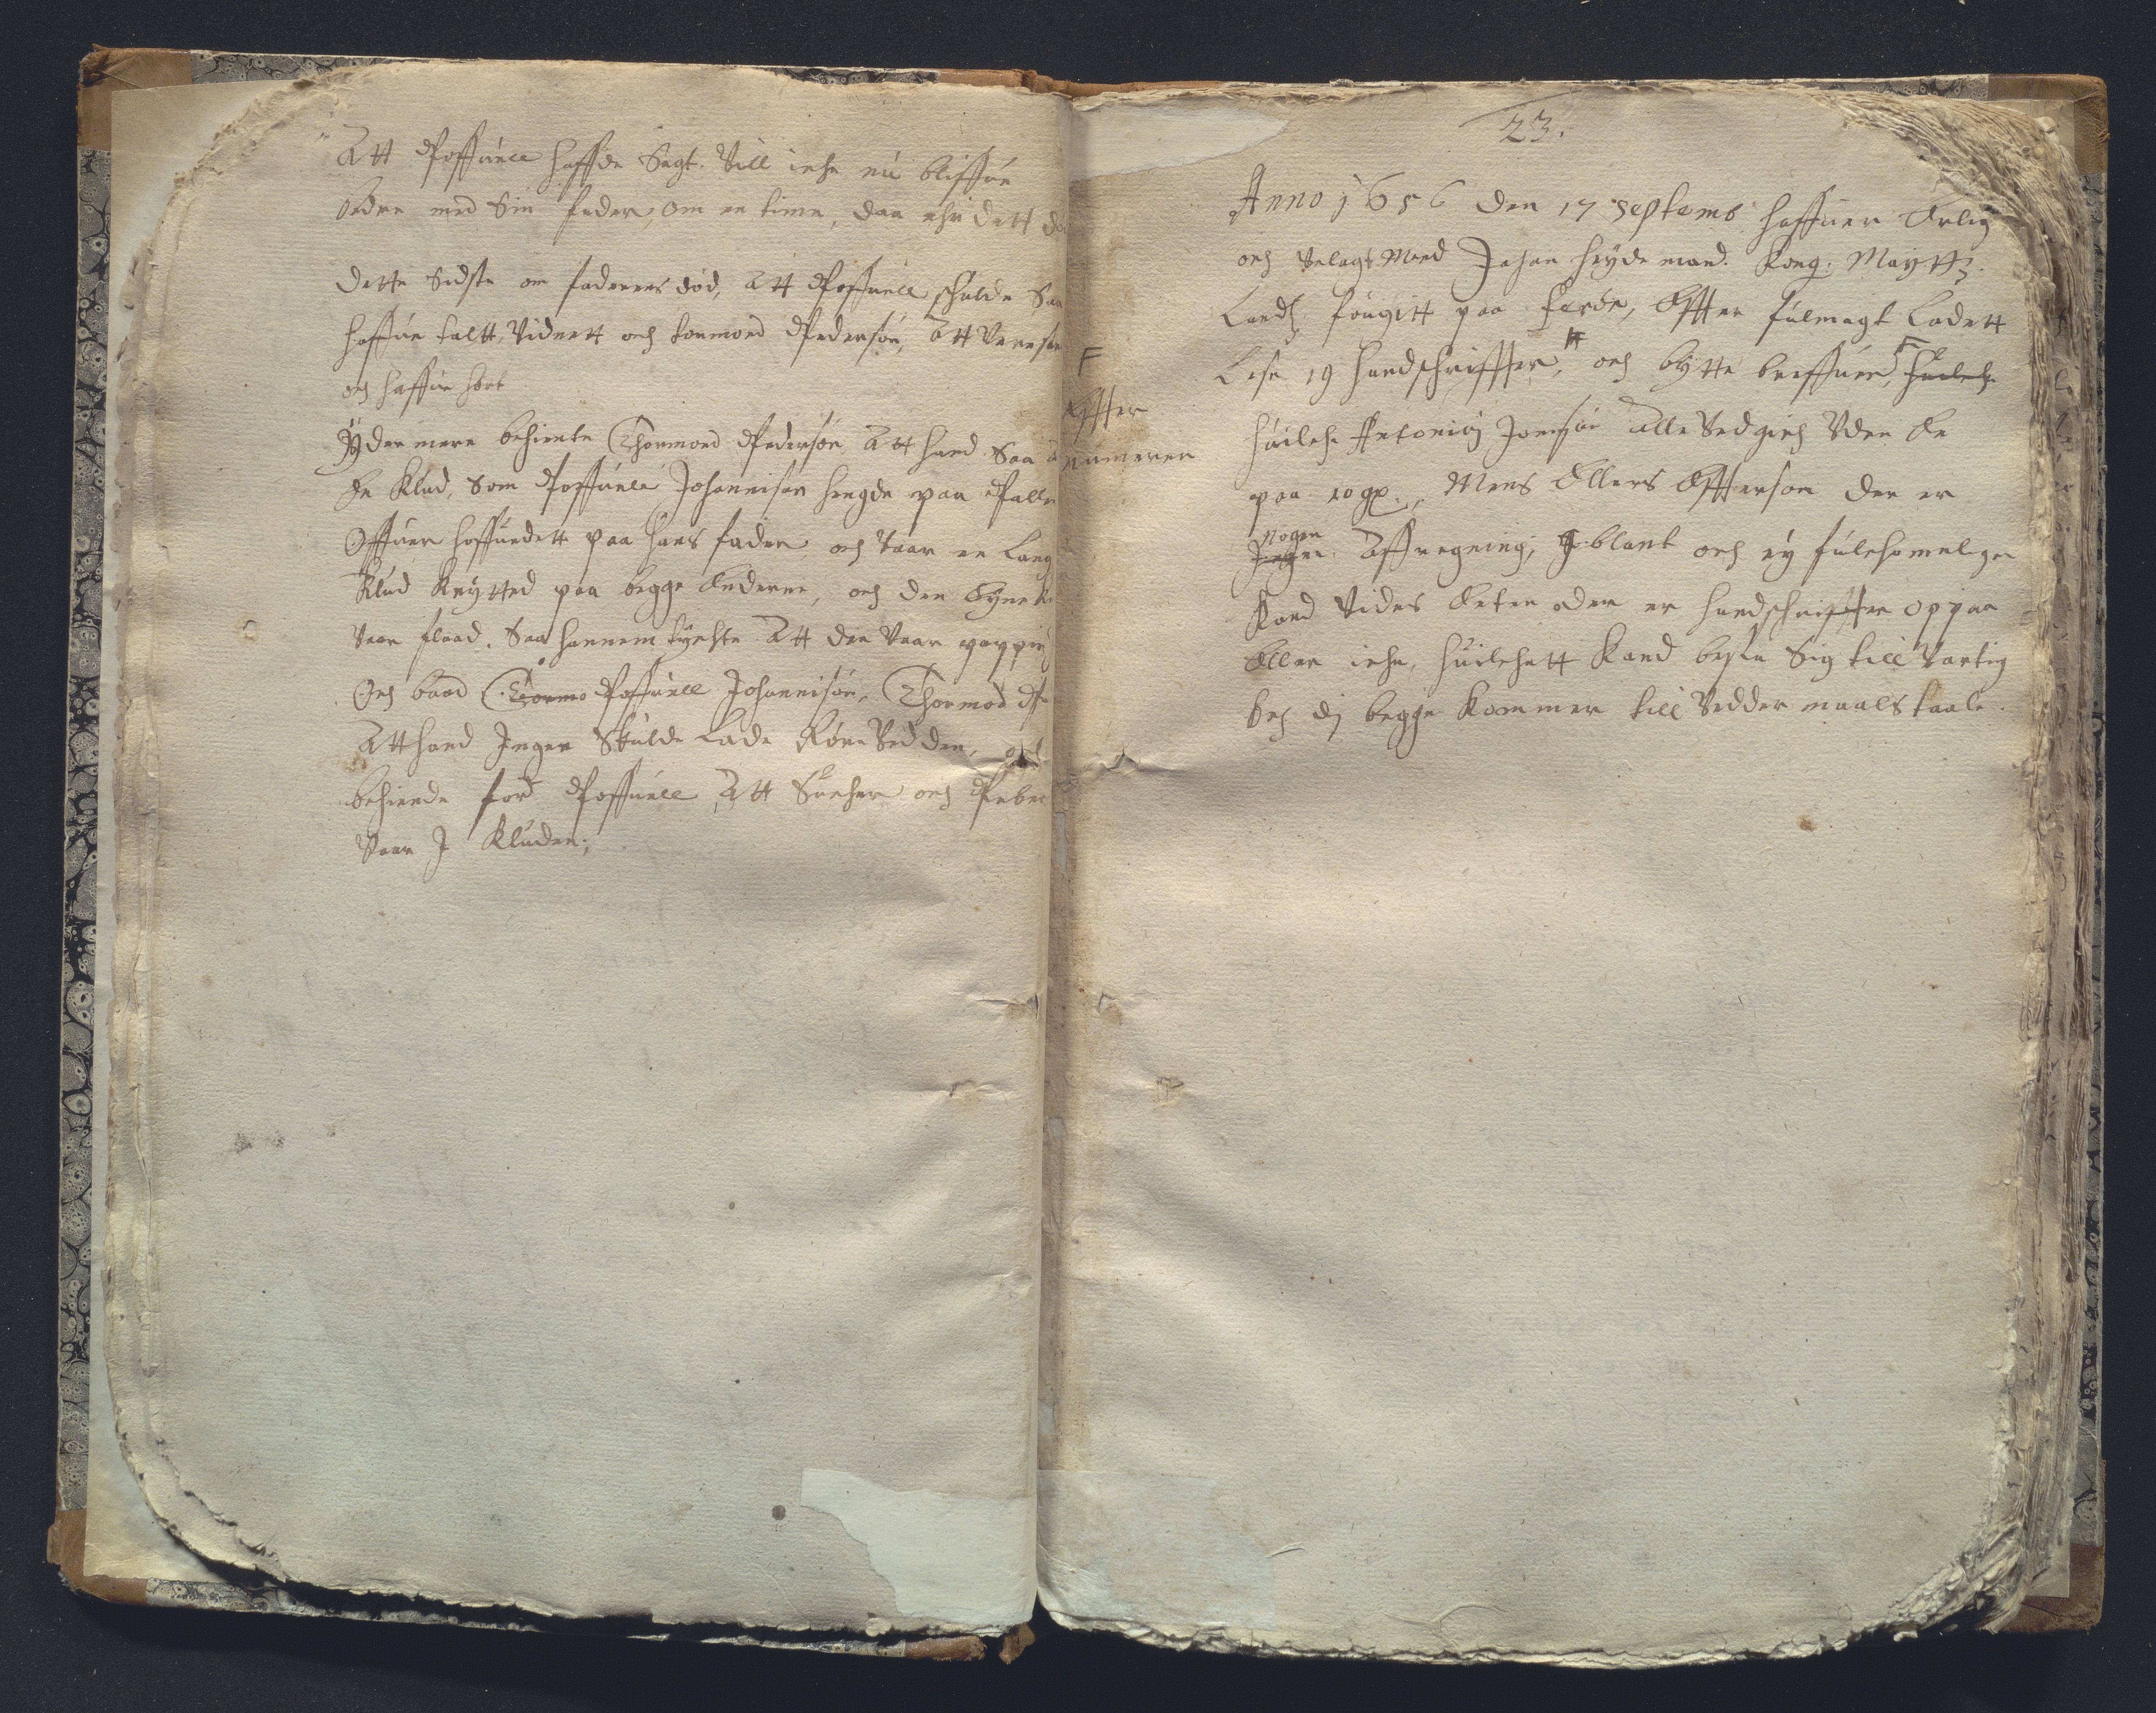 Att Poffuell haffde Sagt. Vill iche nu bliffue
bedre med Sin fader, om en time, daa ehr dett
Dette Sidste om faderens død, Att Poffuell schulde Saa
haffue taltt, Vidnett och tormoed Pedersøn, Att Verre
och haffue hørt
Yder mere bekiente Thormoed Pedersøn Att hand Saa
de Klud, Som Poffuell Johannisøn hengde paa
Offuer hoffuedett paa hans fader och Vaar en Lang
Klud Knytted paa begge Enderne, och den Eyne
Vaar flaad. Saa hannem tychte Att der Vaar
Och baad Tormo Poffuell Johannisøn, Thormod
Att hand Ingen Skulde Lade Røre Ved den,
bekiende for Poffuell Att Sucher och Peber
Vaar J Kluden;
23.
Anno 1656 den 17 Septemb haffuer Erlig
och Velagt Mand Johan heyde mand. Kong. Maytt.
Landß fougitt paa ferde, Effter fulmagt Ladett
Lese 19 handschriffter, och bytte breffuer, huilche
F
Effter
Numerer
huilche Antonius Joensøn alle Ved gich Vden En
paa 10 gl. Mens Ellers Effterson der er
Nogen
Jngen Affregning, Jblant och ey fulchomelige
Kand Vides Enten der er handschriffter oppaa
Eller iche, huilchett Kand beste Sig till Vartig
bes dj begge Kommer till Vedder maals taale.